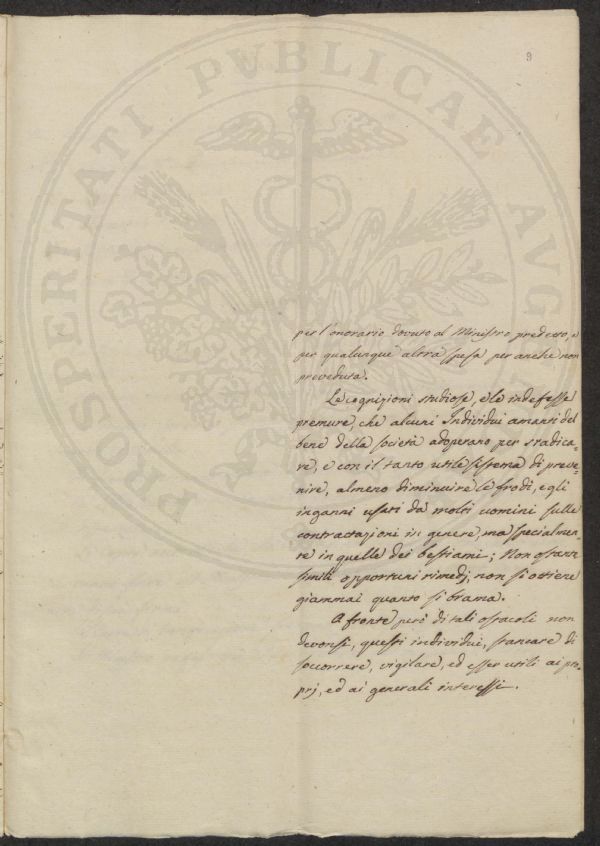 PROSPERITATI PVBLICAE AVG
9
per l'onorario dovuto al Ministro predetto, e
per qualunque altra spesa per anche non
preveduta.
Le cognizioni studiose, e le indefesse
premure, che alcuni Individui amanti del
bene della società adoperano per sradica-
re, e con il tanto utile sistema di preve-
nire, almeno diminuire le frodi, e gli
inganni usati da molti uomini sulle
contrattazioni in genere, ma specialmen-
te in quelle dei bestiami; Non ostante
simili opportuni rimedj, non si ottiene
giammai quanto si brama.
A fronte però di tali ostacoli non
devonsi, questi individui, stancare di
soccorrere, vigilare, ed esser utili ai pro-
prj, ed ai generali interessi.